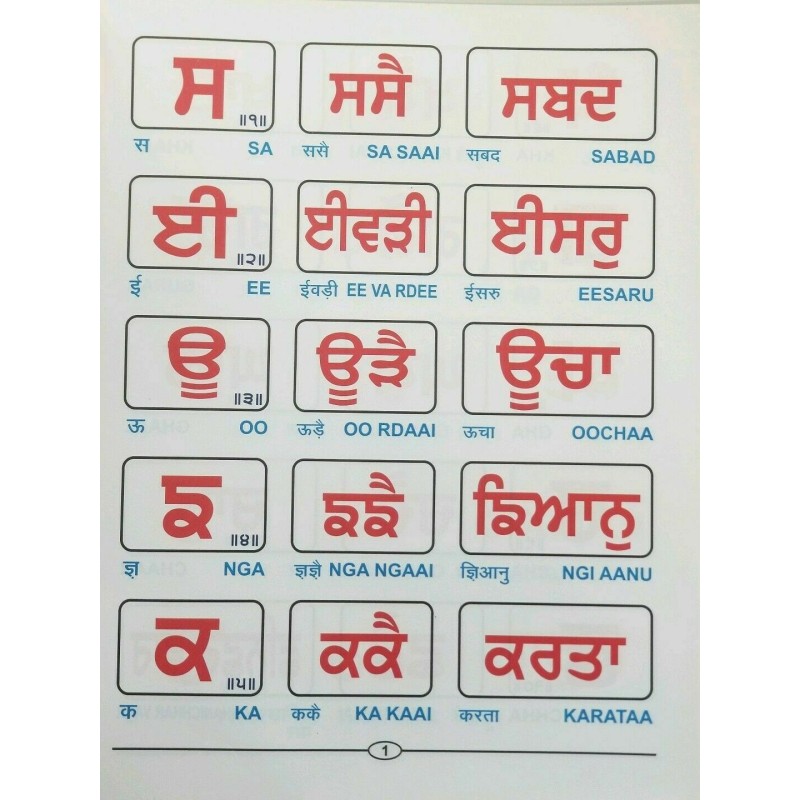 ਸ ॥੧॥ ਸਸੈ ਸਬਦ
स SA ससै SA SAAI सबद SABAD
ਈ ॥੨॥ ਈਵੜੀ ਈਸਰੁ
ई EE ईवड़ी EE VA RDEE ईसरु EESARU
ਊ ॥੩॥ ਊੜੈ ਊਚਾ
ऊ OO ऊड़ै OO RDAAI ऊचा OOCHAA
ਙ ॥੪॥ ਙਙੈ ਙਿਆਨੁ
ज्ञ NGA ज्ञज्ञै NGA NGAAI ज्ञिआनु NGI AANU
ਕ ॥੫॥ ਕਕੈ ਕਰਤਾ
क KA ककै KA KAAI करता KARATAA
1